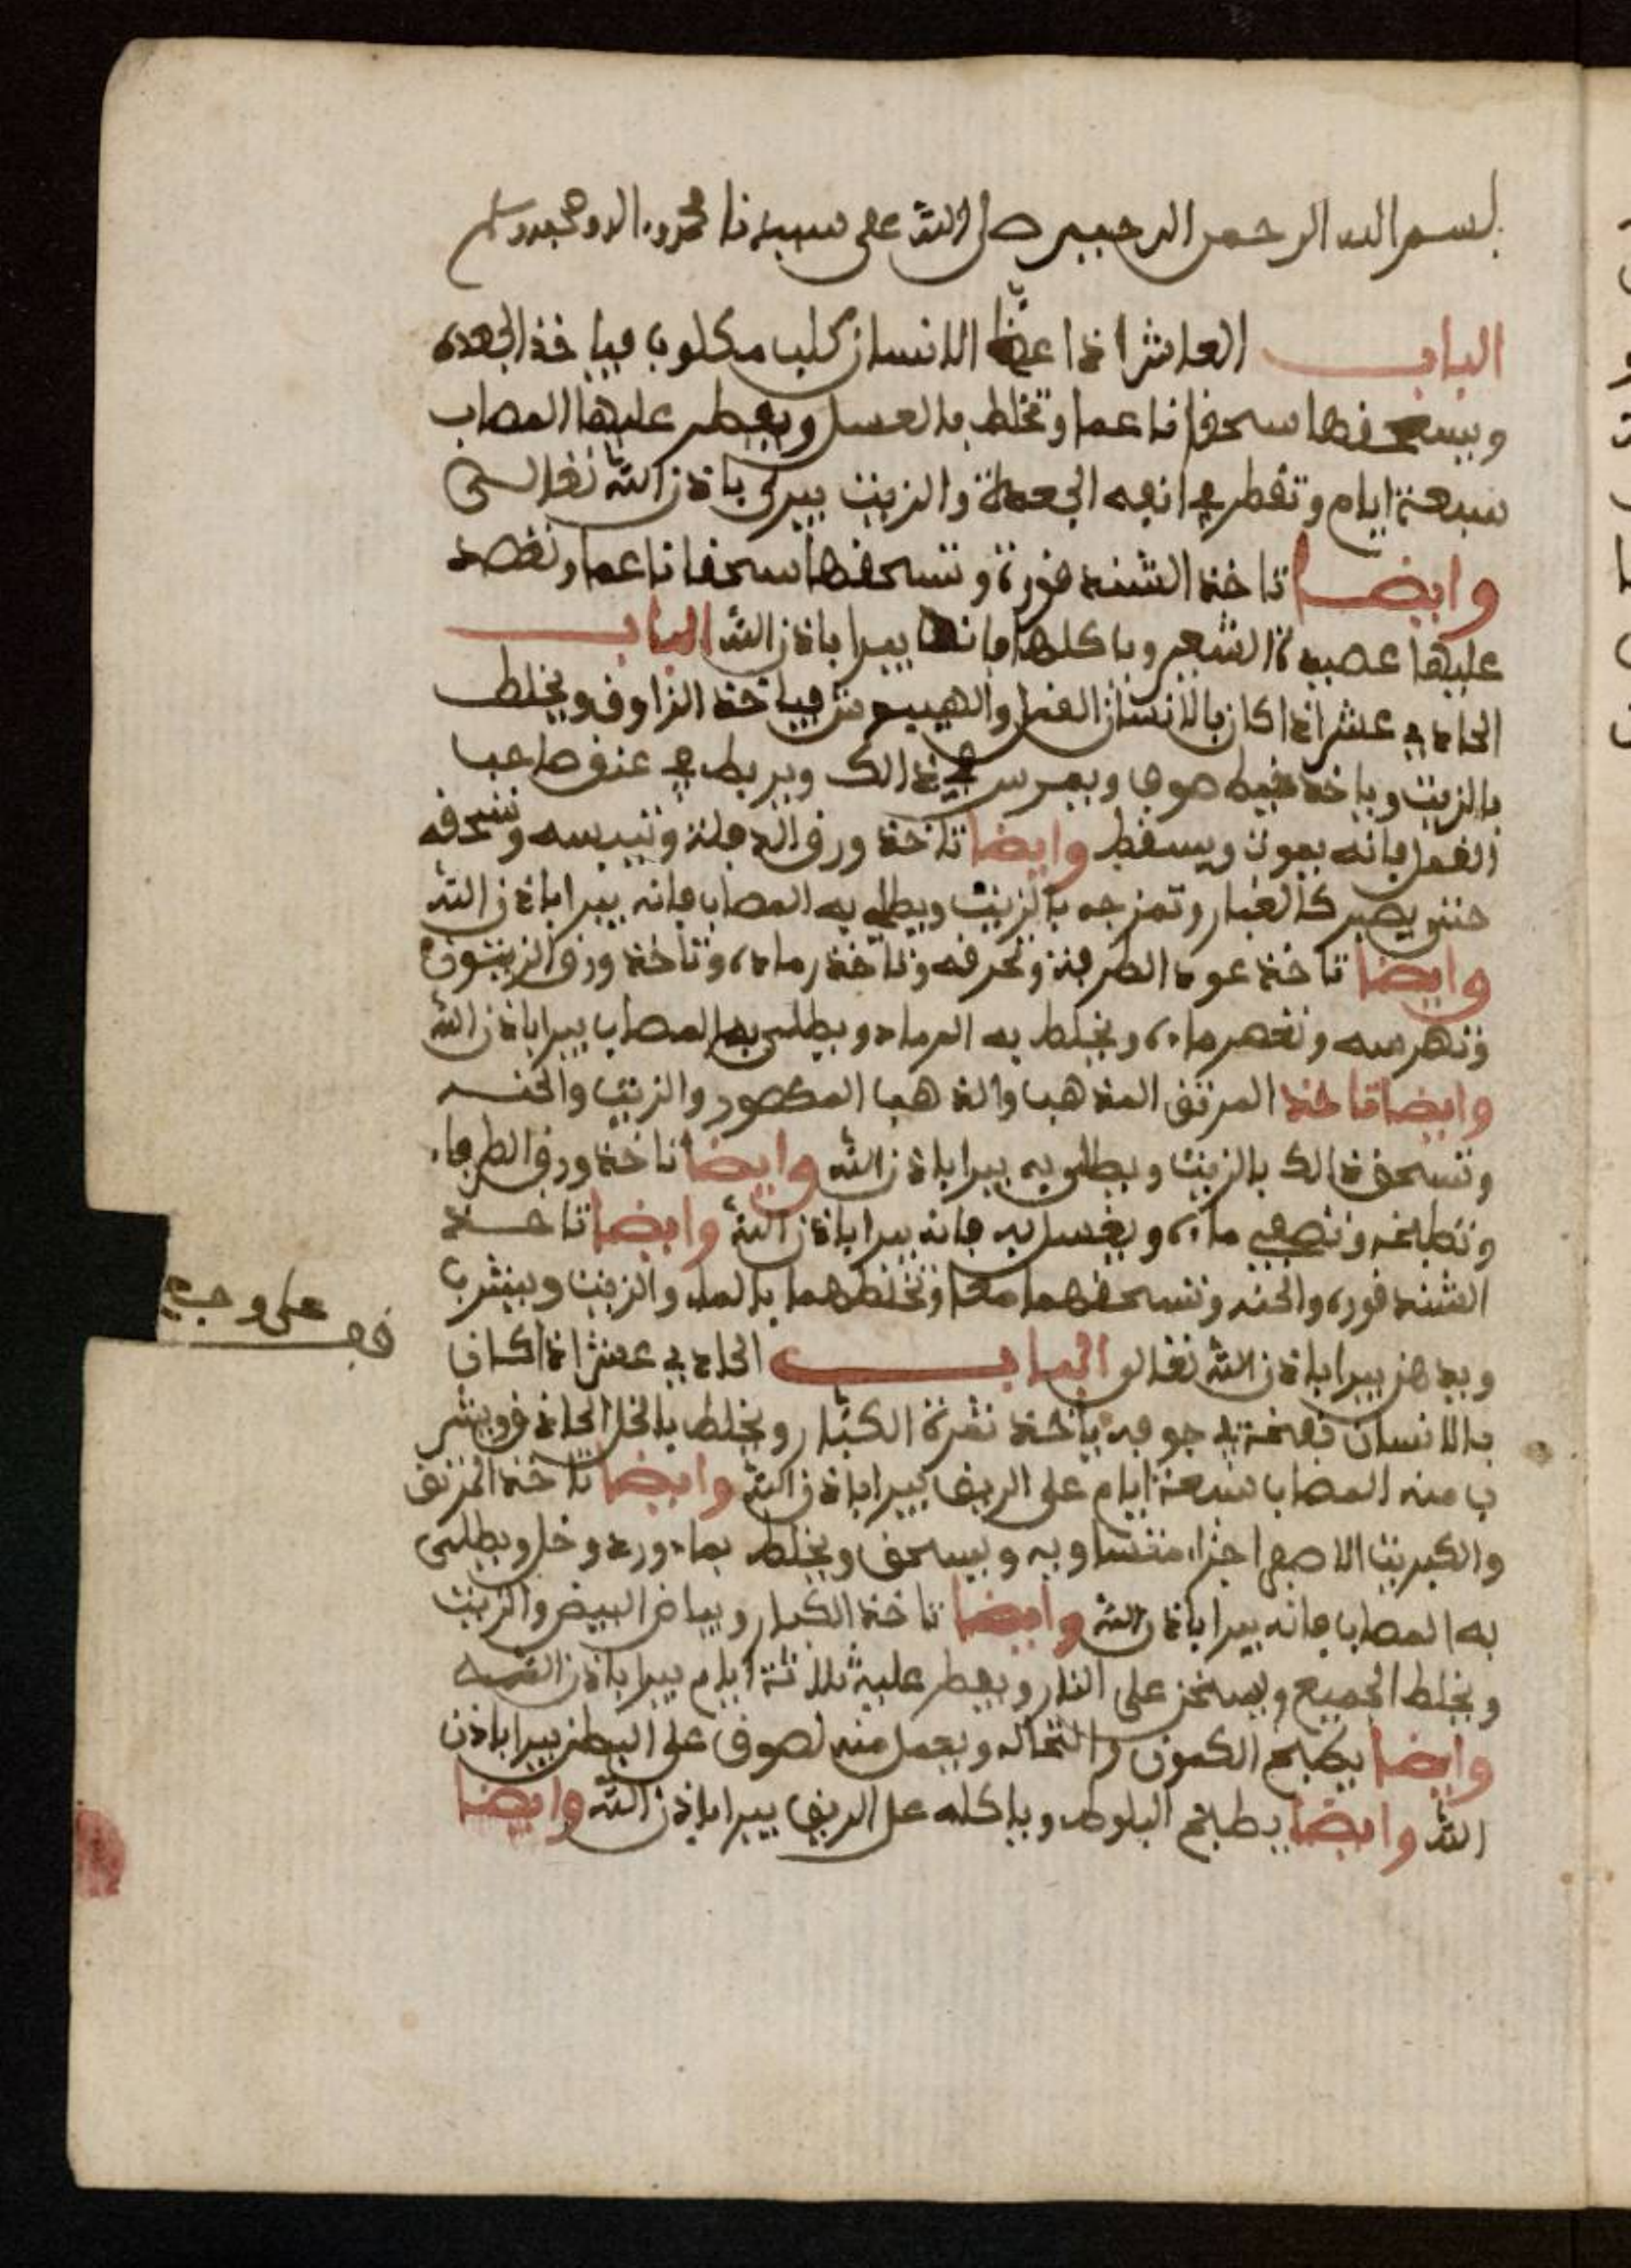 بسم الله الرحمن الرحيم صلى الله على سيدنا محمد واله وصحبه وسلم
الباب العاشر اذا عض الانسان كلب مكلوب فياخذ الجعدة
ويسحقها سحقا ناعما وتخلط بالعسل ويفطر عليها المصاب
سبعة ايام وتقطر في انفه الجعدة والزيت يبرى باذن الله تعالى
وايضا تاخذ الشندقورة وتسحقها سحقا ناعما وتعصد
عليها عصيدة الشعير وياكلها فانه يبرا باذن الله الباب
الحادي عشر اذا كان بالانسان القمل والهيبيد من فياخذ الزاوق ويخلط
بالزيت وياخذ خيط صوف ويمرس في ذالك ويربط في عنق صاحب
القمل فانه يموت ويسقط وايضا تاخذ ورق الدفلة وتيبسه وتسحقه
حتى يصير كالغبار وتمزجه بالزيت ويطلى به المصاب فانه يبرا باذن الله
وايضا تاخذ عود الطرفة وتحرقه وتاخذ رماده وتاخذ ورق الزيتون
وتهرسه وتعصر ماءه ويخلط به الرماد ويطلى به المصاب يبرا باذن الله
وايضا تاخذ المرتق المذهب والذهب المكصور والزيت والحنه
وتسحق ذالك بالزيت ويطلى به يبرا باذن الله وايضا تاخذ ورق الطرفاء
وتطبخه وتصفي ماءه ويغسل به فانه يبرا باذن الله وايضا تاخذ
الشندقورة والحنه وتسحقهما معا وتخلطهما بالماء والزيت ويشرب
ويدهن يبرا باذن الله تعالى الباب الحادي عشر اذا كان
على وجع
بالانسان في جوفه ياخذ ثمرة الكبار ويخلط بالخل الحاذق ويشر
ب منه المصاب سبعة ايام على الريق يبرا باذن الله وايضا تاخذ المرتق
والكبريت الاصفر اجزاء متساويه ويسحق ويخلط بماء ورد وخل ويطلى
به المصاب فانه يبرا باذن الله وايضا تاخذ الكبار وبياض البيض والزيت
ويخلط الجميع ويسخن على النار ويفطر عليه ثلاثة ايام يبرا باذن الله
وايضا يطبخ الكمون والنخاله ويعمل منه لصوق على البطن يبرا باذن
الله وايضا يطبخ البلوط وياكله على الريق يبرا باذن الله وايضا